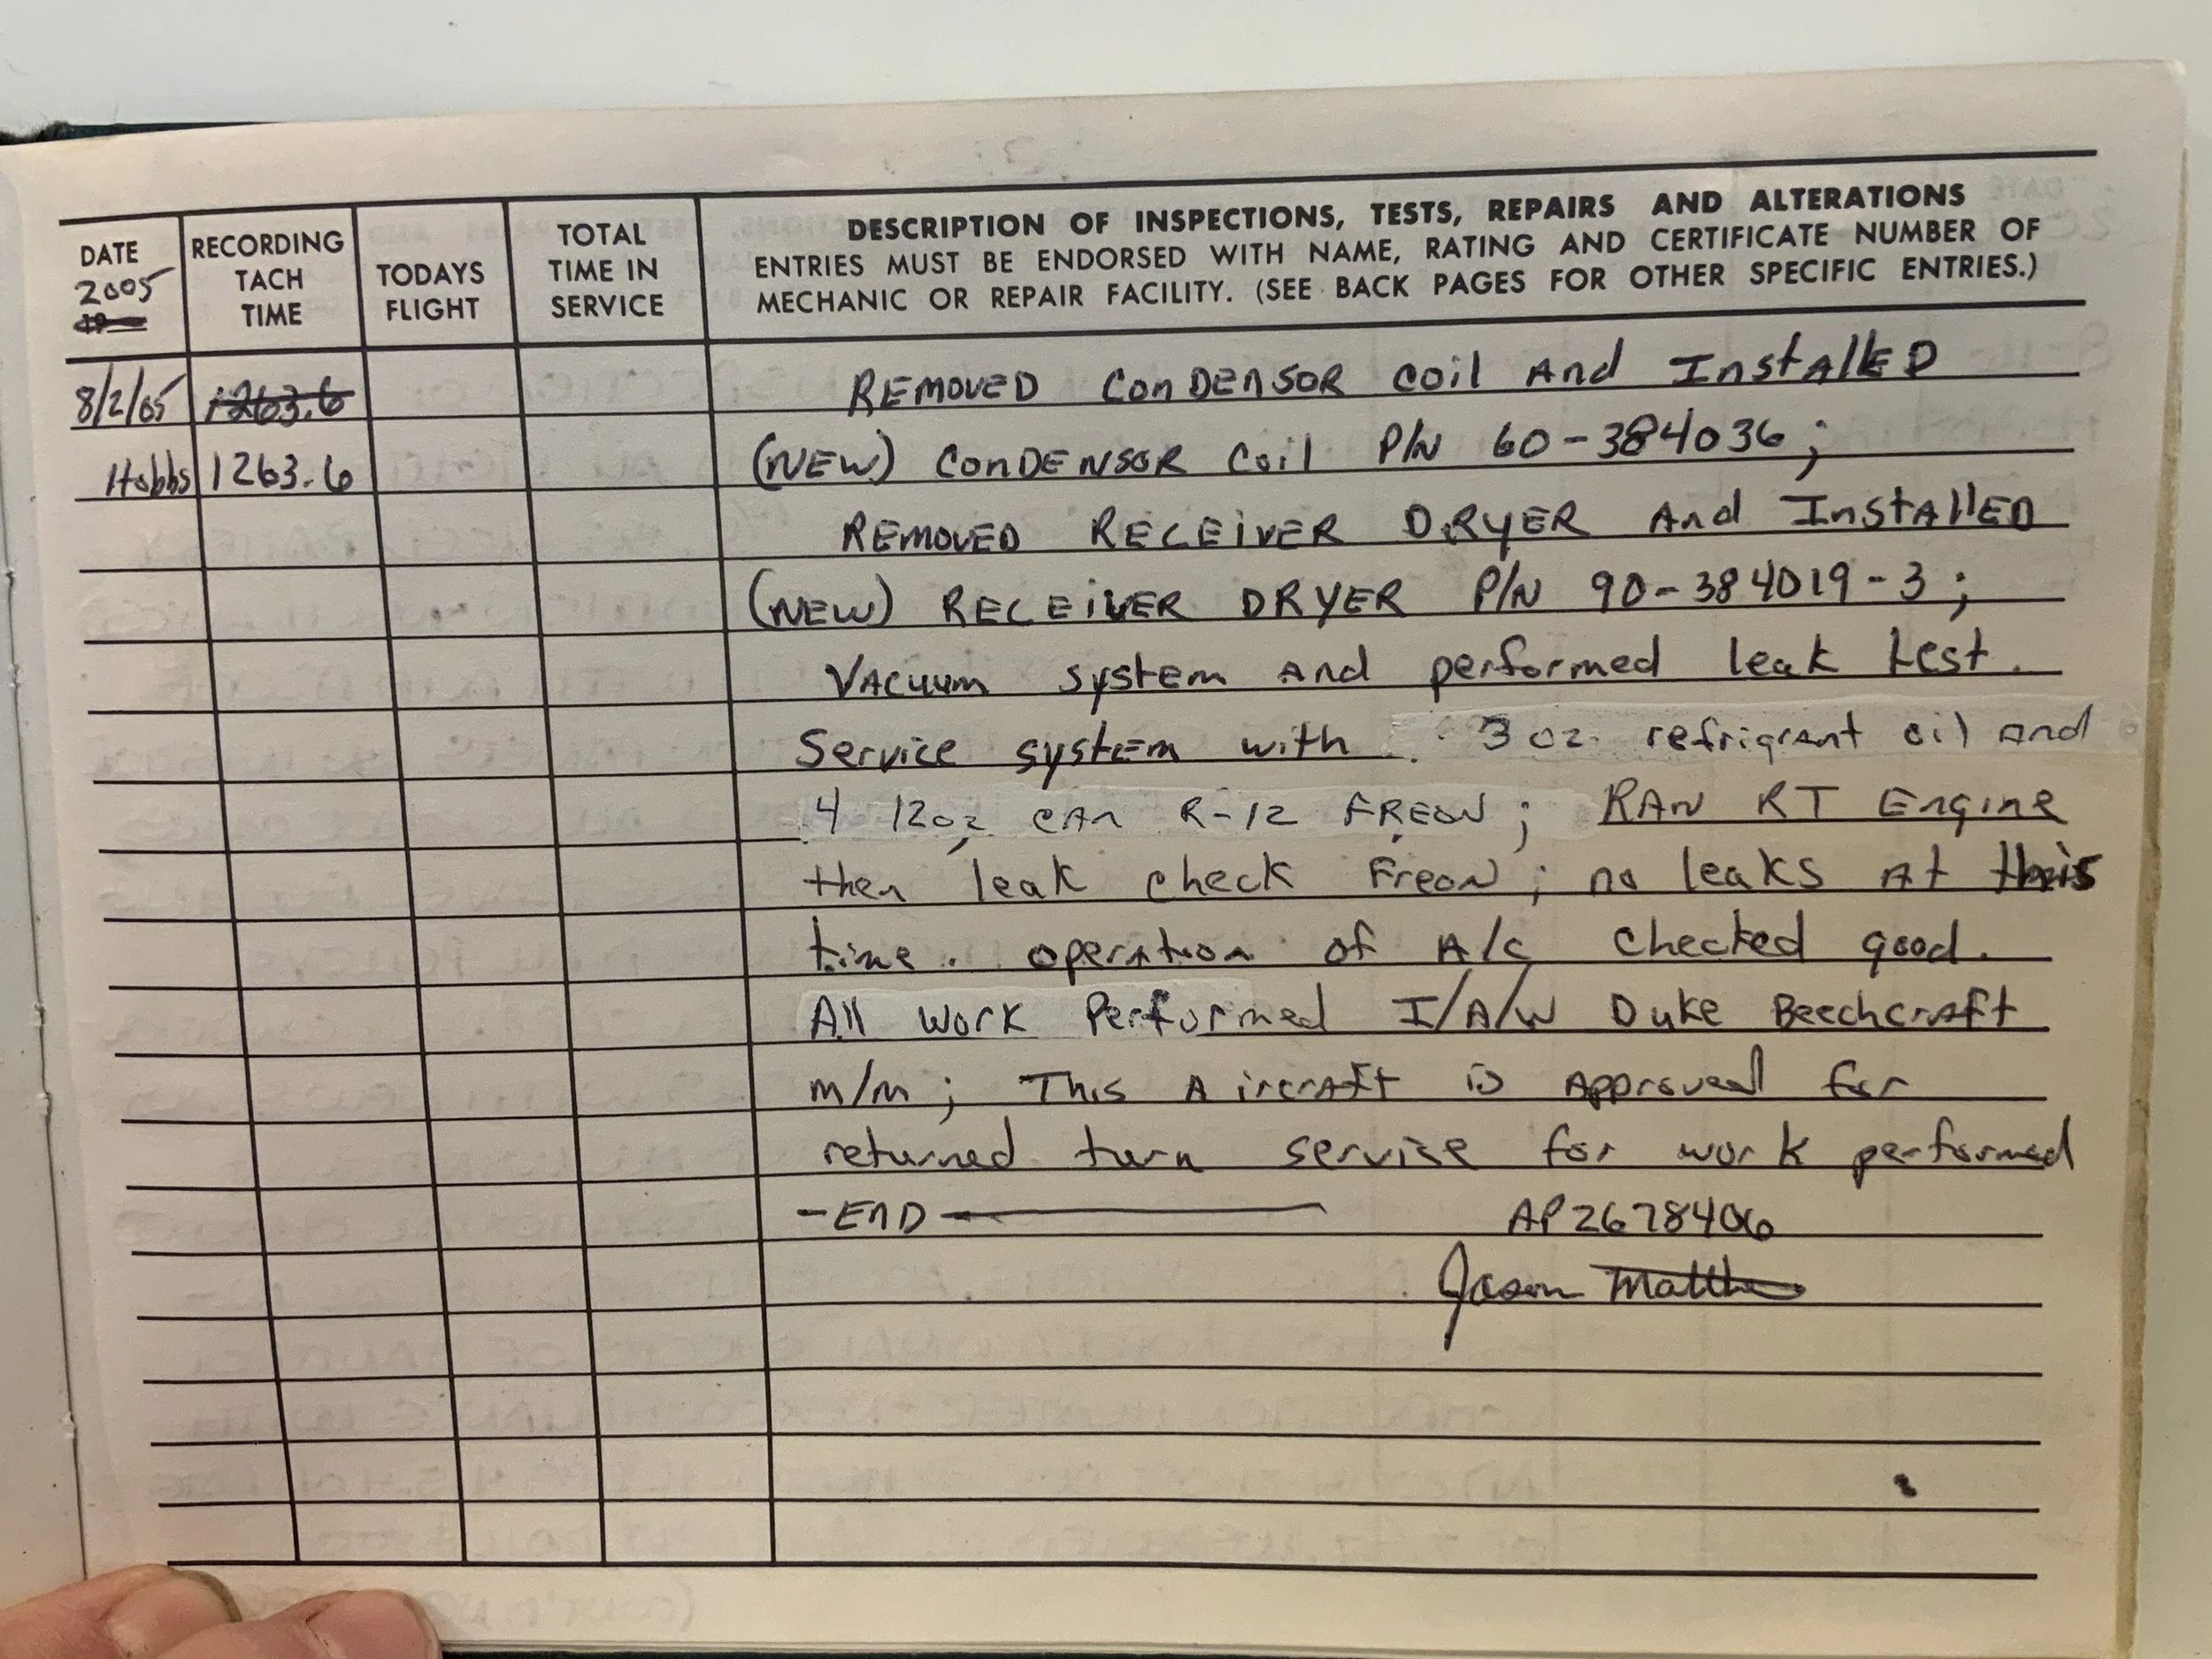 DATE
2005
19
RECORDING
TACH
TIME
TODAYS
FLIGHT
TOTAL
TIME IN
SERVICE
DESCRIPTION OF INSPECTIONS, TESTS, REPAIRS AND ALTERATIONS
ENTRIES MUST BE ENDORSED WITH NAME, RATING AND CERTIFICATE NUMBER OF
MECHANIC OR REPAIR FACILITY. (SEE BACK PAGES FOR OTHER SPECIFIC ENTRIES.)
8/2/05 1263.6 REMOVED ConDEnSOR coil And InstAllED
Hobbs 1263.6 (NEW) ConDENSOR Coil P/N 60-384036;
REMOVED RECEiVER DRyER And InstAllED
(NEW) RECEiVER DRYER P/N 90-384019-3;
VAcuum system And performed leak test.
Service system with 3 oz refrigrant oil And
4 12oz cAn R-12 FREON; RAN RT Engine
then leak check Freon; no leaks At this
time. operAtion of A/c checked good.
All work Performed I/A/W Duke Beechcraft
m/m; This AircrAft is Approved for
returned turn service for work performed
-END- AP2678406
Jason